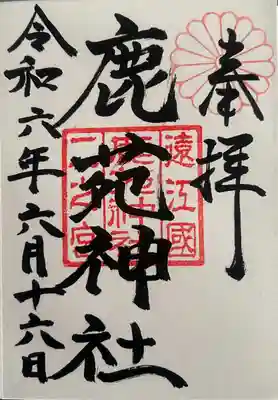 奉拝
鹿苑神社
遠江國
二之宮
令和六年六月十六日